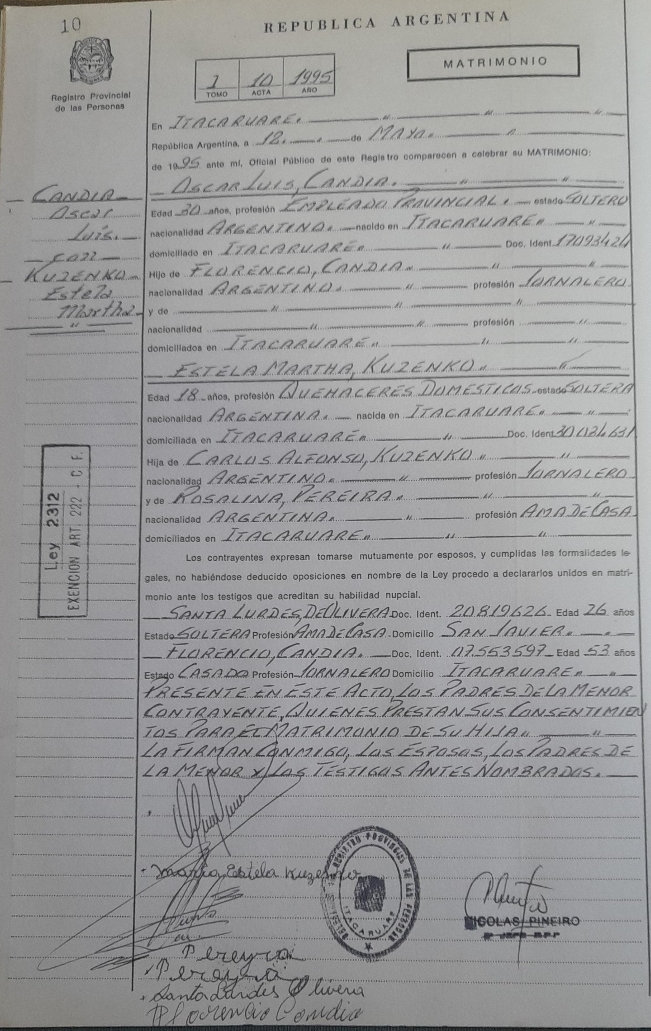 10
REPUBLICA ARGENTINA
MATRIMONIO
1 10 1995
TOMO ACTA AÑO
Registro Provincial
de las Personas
En ITACARUARE.
República Argentina, a 12 de MAYO.
de 1995 ante mí, Oficial Público de este Registro comparecen a celebrar su MATRIMONIO:
OSCAR LUIS, CANDIA.
CANDIA
Oscar
Luis.
con
KUZENKO
Estela
Martha
Edad 30 años, profesión EMPLEADO PROVINCIAL. estado SOLTERO
nacionalidad ARGENTINO. nacido en ITACARUARE
domiciliado en ITACARUARE Doc. Ident. 17093424
Hijo de FLORENCIO, CANDIA
nacionalidad ARGENTINO. profesión JORNALERO
y de
nacionalidad profesión
domiciliados en ITACARUARE
ESTELA MARTHA, KUZENKO
Edad 18 años, profesión QUEHACERES DOMESTICOS estado SOLTERA
nacionalidad ARGENTINA. nacida en ITACARUARE
domiciliada en ITACARUARE Doc. Ident. 30024631
Hija de CARLOS ALFONSO, KUZENKO
nacionalidad ARGENTINO. profesión JORNALERO
y de ROSALINA, PEREIRA
nacionalidad ARGENTINA. profesión AMA DE CASA
domiciliados en ITACARUARE
Ley 2312
EXENCION ART. 222 . C. F.
Los contrayentes expresan tomarse mutuamente por esposos, y cumplidas las formalidades le-
gales, no habiéndose deducido oposiciones en nombre de la Ley procedo a declararlos unidos en matri-
monio ante los testigos que acreditan su habilidad nupcial.
SANTA LURDES, DEOLIVERA Doc. Ident. 20819626 Edad 26 años
Estado SOLTERA Profesión AMA DE CASA. Domicilio SAN JAVIER.
FLORENCIO, CANDIA. Doc. Ident. 07.553597 Edad 53 años
Estado CASADO Profesión JORNALERO Domicilio ITACARUARE
PRESENTE EN ESTE ACTO, LOS PADRES DE LA MENOR
CONTRAYENTE, QUIENES PRESTAN SUS CONSENTIMIEN
TOS PARA EL MATRIMONIO DE SU HIJA
LA FIRMAN CONMIGO, LOS ESPOSOS, LOS PADRES DE
LA MENOR Y LOS TESTIGOS ANTES NOMBRADOS.
Estela Kuzenko
REGISTRO PROVINCIAL DE LAS PERSONAS
ITACARUARE
NICOLAS PINEIRO
Pereyra
Pereyra
Santa Lurdes Olivera
Florencio Candia